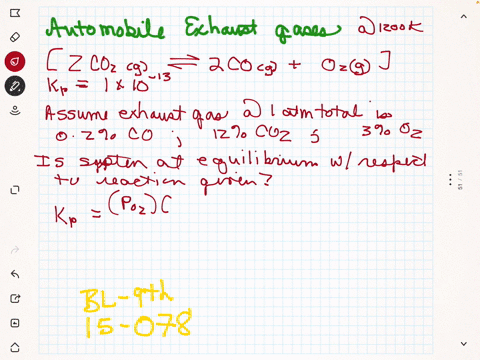 Automobile Exhaust gases @ 1200K
[ 2 CO₂ (g) ⇌ 2CO (g) + O₂ (g) ]
Kp = 1 × 10⁻¹³
Assume exhaust gas @ 1 atm total is
0.2% CO ; 12% CO₂ ; 3% O₂
Is system at equilibrium w/ respect
to reaction given?
Kp = (PO₂) (
BL-9th
15-078